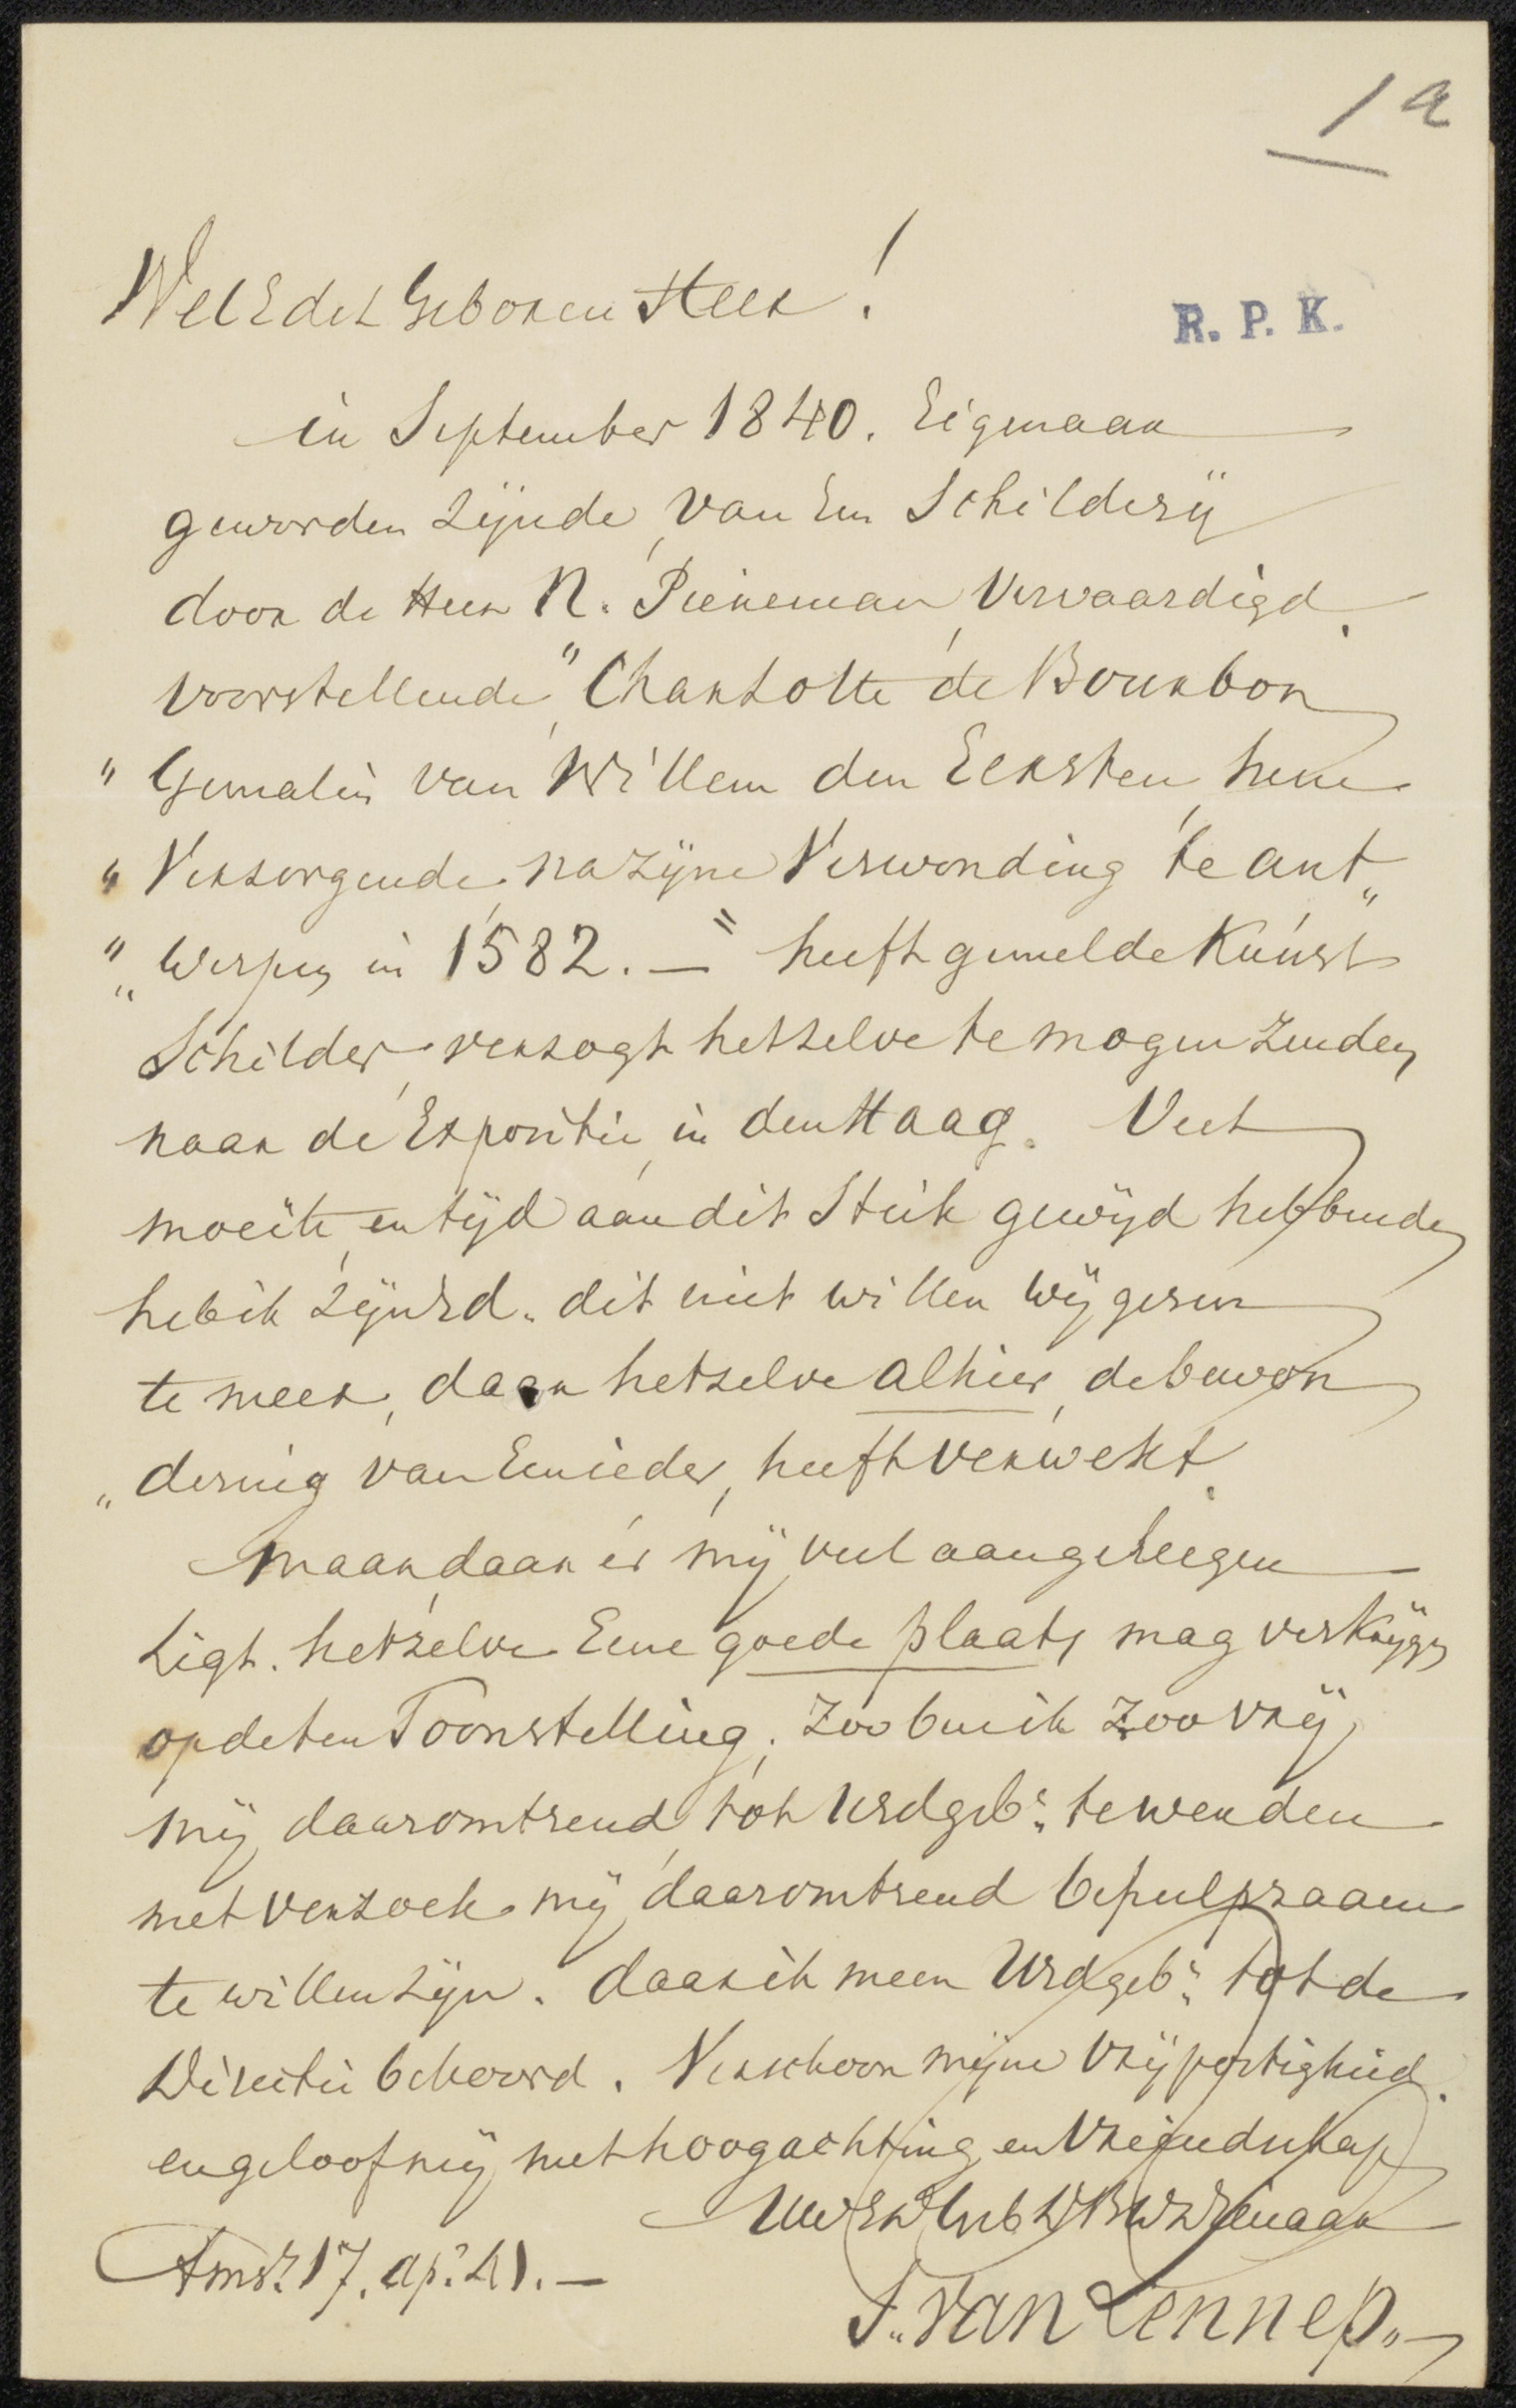 1a
WelEdel Geboren Heer!
R. P. K.
in September 1840. Eigenaar
geworden zijnde, van een Schilderij
door de Heer N. Pieneman, Vervaardigd.
voorstellende, "Charlotte de Bourbon
" Gemalin van Willem den Eersten, hem
" Versorgende, na zijne Verwonding te ant„
" „werpen in 1582. — " heeft gemelde Kunst
Schilder, verzogt hetzelve te mogen zenden
naar de Expositie, in den Haag. Veel
moeite, en tijd aan dit Stuk gewijd hebbende
heb ik zijnEd. dit niet willen wijgeren
te meer, daar hetzelve alhier, de bewon
„dering van Een ieder, heeft verwekt.
maar, daar er mij veel aangeleegen
Ligt. hetzelve Eene goede plaats mag verkrijgen
op de ten Toonstelling; zoo ben ik zoo vrij
mij daaromtrend, tot UEdgeb: te wenden
met verzoek mij, daaromtrend behulpzaam
te willen zijn. daar ik meen UEdgeb: tot de
Directie behoord. Verschoon mijne vrijpostigheid.
en geloof mij, met hoogachting en Vriendschap
UwEd Geb DW Dienaar
Amst 17. ap: 41. —
S. van Lennep. —